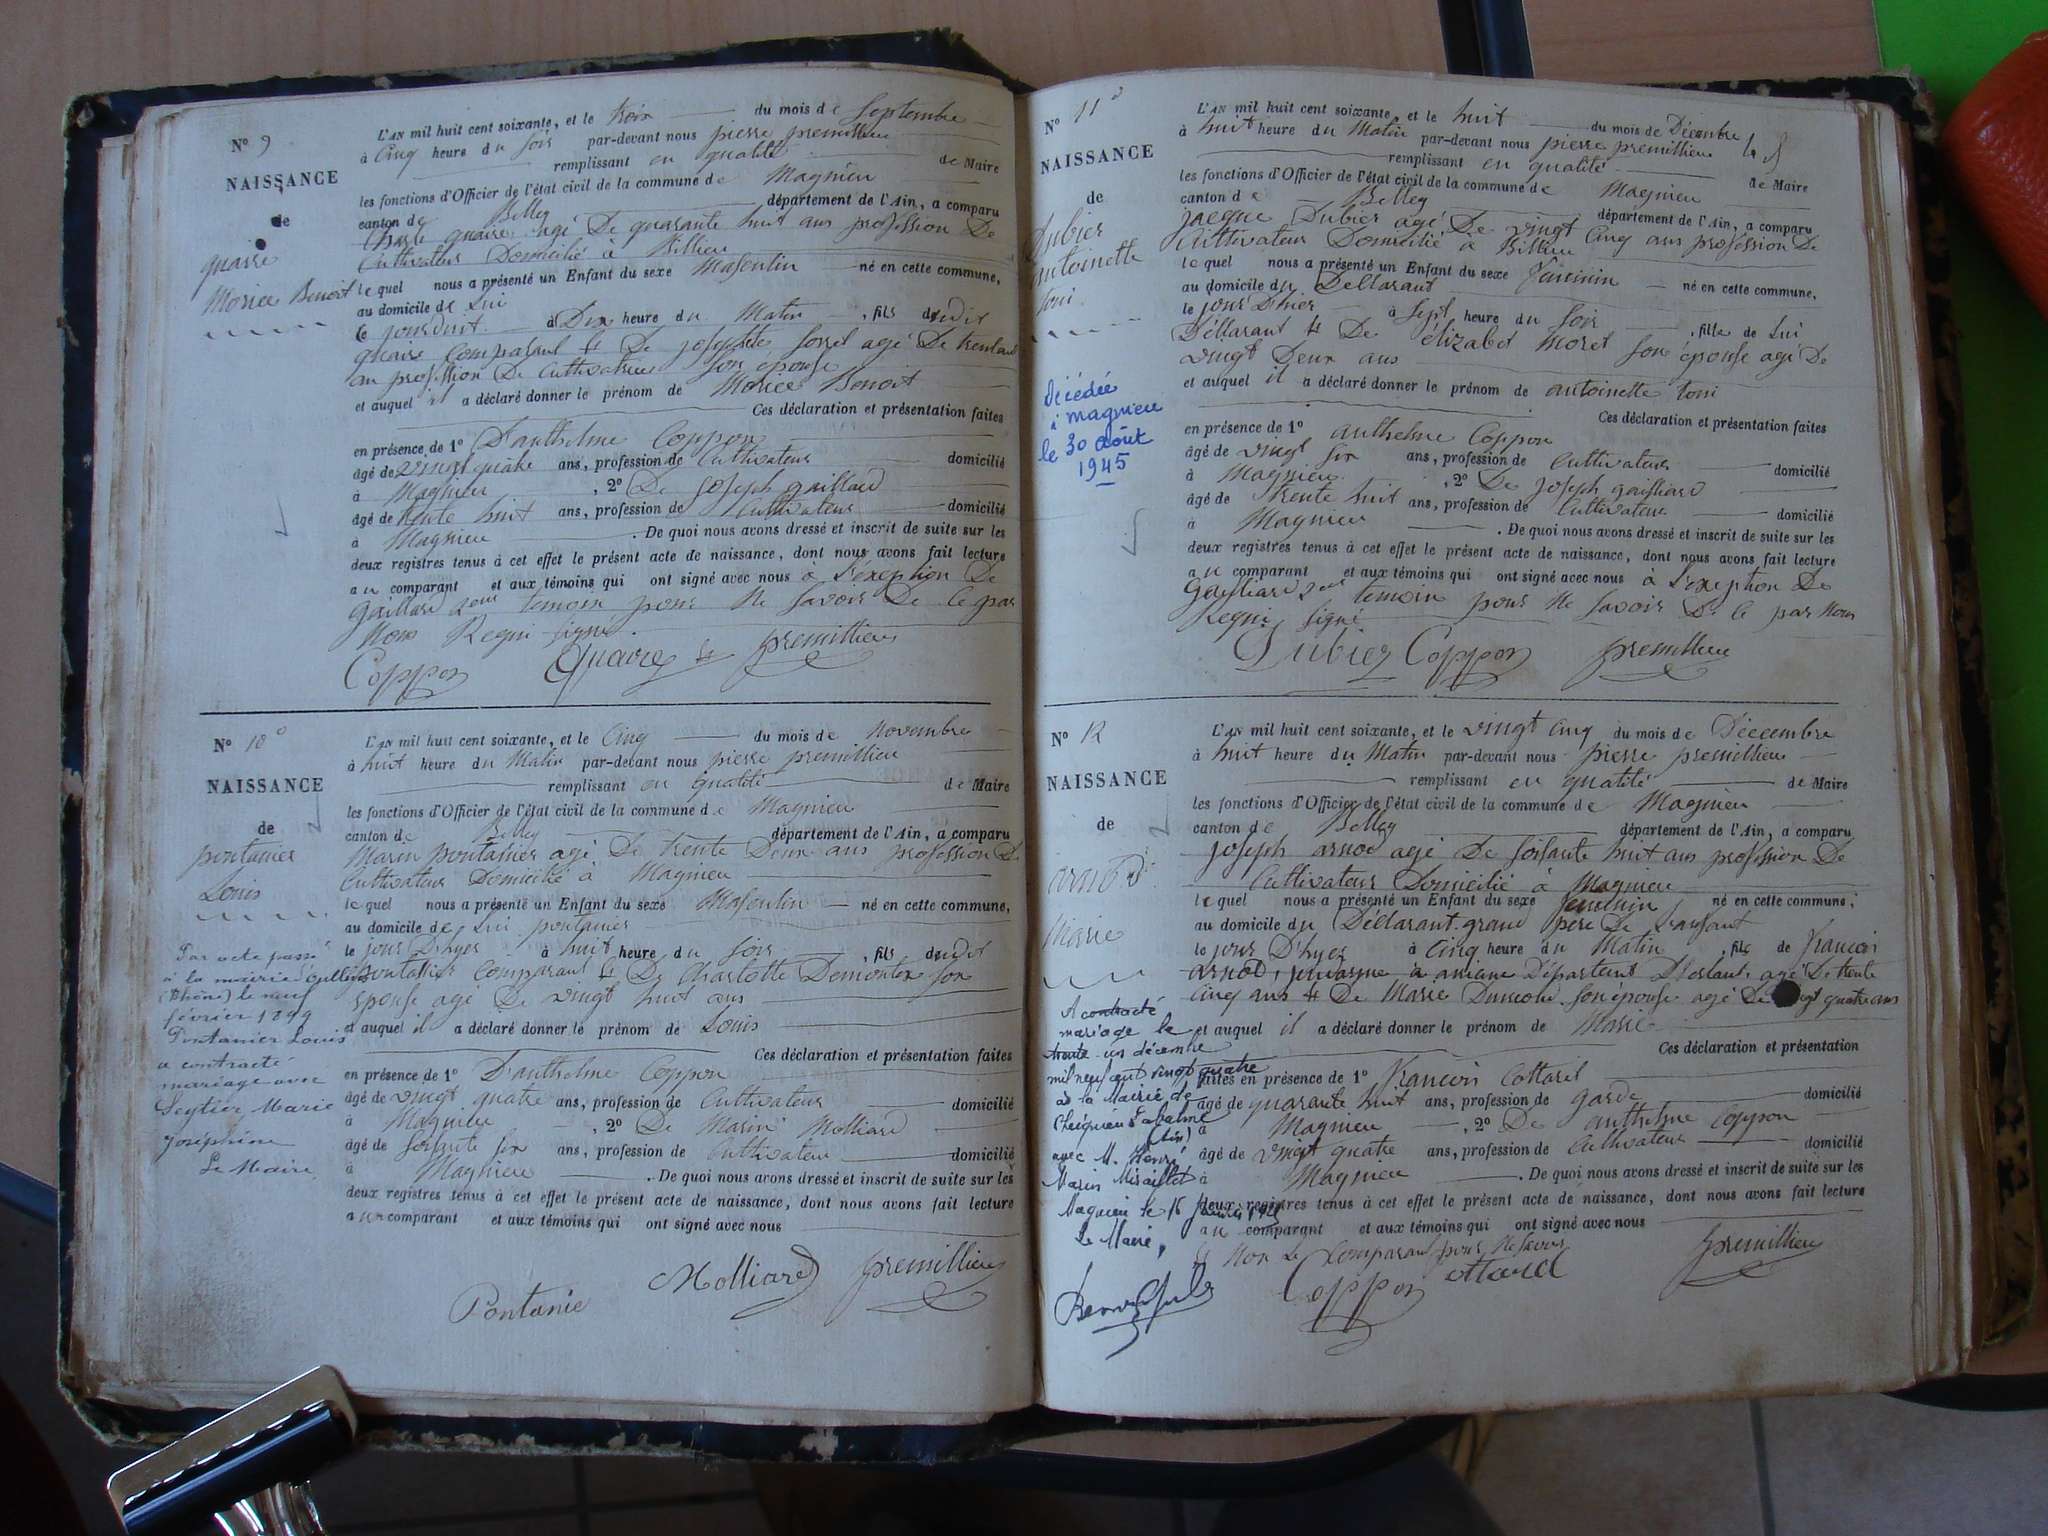 N° 9
NAISSANCE
de
quarre
Morice Benoit
L'AN mil huit cent soixante, et le trois du mois de Septembre
à Cinq heure du Soir par-devant nous pierre premillieu
remplissant en qualité de Maire
les fonctions d'Officier de l'état civil de la commune de Magnieu
canton de Belley département de l'Ain, a comparu
quaire agé De quarante huit ans profession De
Cultivateur Domicilié à Billieu
le quel nous a présenté un Enfant du sexe Masculin né en cette commune,
au domicile de Lui
à Dix heure du Matin, fils dudit
quaire Comparant & De josephte Sorret agé De trentaun
an profession De Cultivatrice Son épouse
et auquel il a déclaré donner le prénom de Morice Benoit
Ces déclaration et présentation faites
en présence de 1° D'anthelme Coppon
âgé de vingt quatre ans, profession de Cultivateur domicilié
à Magnieu, 2° De joseph gaillard
âgé de trente huit ans, profession de Cultivateur domicilié
à Magnieu. De quoi nous avons dressé et inscrit de suite sur les
deux registres tenus à cet effet le présent acte de naissance, dont nous avons fait lecture
au comparant et aux témoins qui ont signé avec nous à L'exeption De
gaillard 2eme temoin pour Ne Savoir De Ce par
Nous Requi signé
Coppon Quaire & premillieu
N° 10
NAISSANCE
de
pontanier
Louis
Par acte passé
à la mairie d'Oullins
(Rhône) le neuf
février 1899
Pontanier Louis
a contracté
mariage avec
Seytier Marie
Joséphine
Le Maire
L'AN mil huit cent soixante, et le Cinq du mois de Novembre
à huit heure du Matin par-devant nous pierre premillieu
remplissant en qualité de Maire
les fonctions d'Officier de l'état civil de la commune de Magnieu
canton de Belley département de l'Ain, a comparu
Marin pontanier agé De trente Deux ans profession De
Cultivateur Domicilié à Magnieu
le quel nous a présenté un Enfant du sexe Masculin né en cette commune,
au domicile de Lui pontanier
le jour D'hyer à huit heure du Soir, fils dudit
pontanier Comparant & De Charlotte Demontex Son
épouse agé De vingt huit ans
et auquel il a déclaré donner le prénom de Louis
Ces déclaration et présentation faites
en présence de 1° D'anthelme Coppon
âgé de vingt quatre ans, profession de Cultivateur domicilié
à Magnieu, 2° De Marin Molliard
âgé de Soisante Six ans, profession de Cultivateur domicilié
à Magnieu. De quoi nous avons dressé et inscrit de suite sur les
deux registres tenus à cet effet le présent acte de naissance, dont nous avons fait lecture
au comparant et aux témoins qui ont signé avec nous
Pontanie Molliard premillieu
N° 11
NAISSANCE
de
Dubier
antoinette
toni
Décédée
à Magnieu
le 30 août
1945
L'AN mil huit cent soixante, et le huit du mois de Décembre
à huit heure du Matin par-devant nous pierre premillieu
remplissant en qualité de Maire
les fonctions d'Officier de l'état civil de la commune de Magnieu
canton de Belley département de l'Ain, a comparu
jacque Dubier agé De vingt Cinq ans profession De
Cultivateur Domicilié à Billieu
le quel nous a présenté un Enfant du sexe féminin né en cette commune,
au domicile du Déclarant
le jour D'hier à Sept heure du Soir, fille de Lui
Déclarant & De élizabet Moret Son épouse agé De
vingt Deux ans
et auquel il a déclaré donner le prénom de antoinette toni
Ces déclaration et présentation faites
en présence de 1° anthelme Coppon
âgé de vingt Six ans, profession de Cultivateur domicilié
à Magnieu, 2° De joseph gailliard
âgé de trente huit ans, profession de Cultivateur domicilié
à Magnieu. De quoi nous avons dressé et inscrit de suite sur les
deux registres tenus à cet effet le présent acte de naissance, dont nous avons fait lecture
au comparant et aux témoins qui ont signé avec nous à L'exeption De
gailliard 2eme temoin pour Ne Savoir De Ce par Nous
Requi signé
Dubier Coppon premillieu
N° 12
NAISSANCE
de
arnod
Marie
A contracté
mariage le
trente-un décembre
mil neuf cent vingt quatre
à la Mairie de
Cheignieu Labalme
(Ain)
avec M. Henri
Marin Miraillet
Magnieu le 16 Janvier 1925
Le Maire,
L'AN mil huit cent soixante, et le vingt cinq du mois de Décembre
à huit heure du Matin par-devant nous pierre premillieu
remplissant en qualité de Maire
les fonctions d'Officier de l'état civil de la commune de Magnieu
canton de Belley département de l'Ain, a comparu
joseph arnod agé De Soisante huit ans profession De
Cultivateur Domicilié à Magnieu
le quel nous a présenté un Enfant du sexe féminin né en cette commune;
au domicile du Déclarant grand père De L'anfant
le jour D'hyer à Cinq heure du Matin, fils de francois
arnod, à Département agé De trente
Cinq ans & De Marie Son épouse agé De vingt quatre ans
et auquel il a déclaré donner le prénom de Marie
Ces déclaration et présentation
faites en présence de 1° francois Cottard
âgé de quarante huit ans, profession de garde domicilié
à Magnieu, 2° De anthelme Coppon
âgé de vingt quatre ans, profession de Cultivateur domicilié
à Magnieu. De quoi nous avons dressé et inscrit de suite sur les
deux registres tenus à cet effet le présent acte de naissance, dont nous avons fait lecture
au comparant et aux témoins qui ont signé avec nous
& Non Le Comparant pour Ne Savoir
Coppon Cottard premillieu